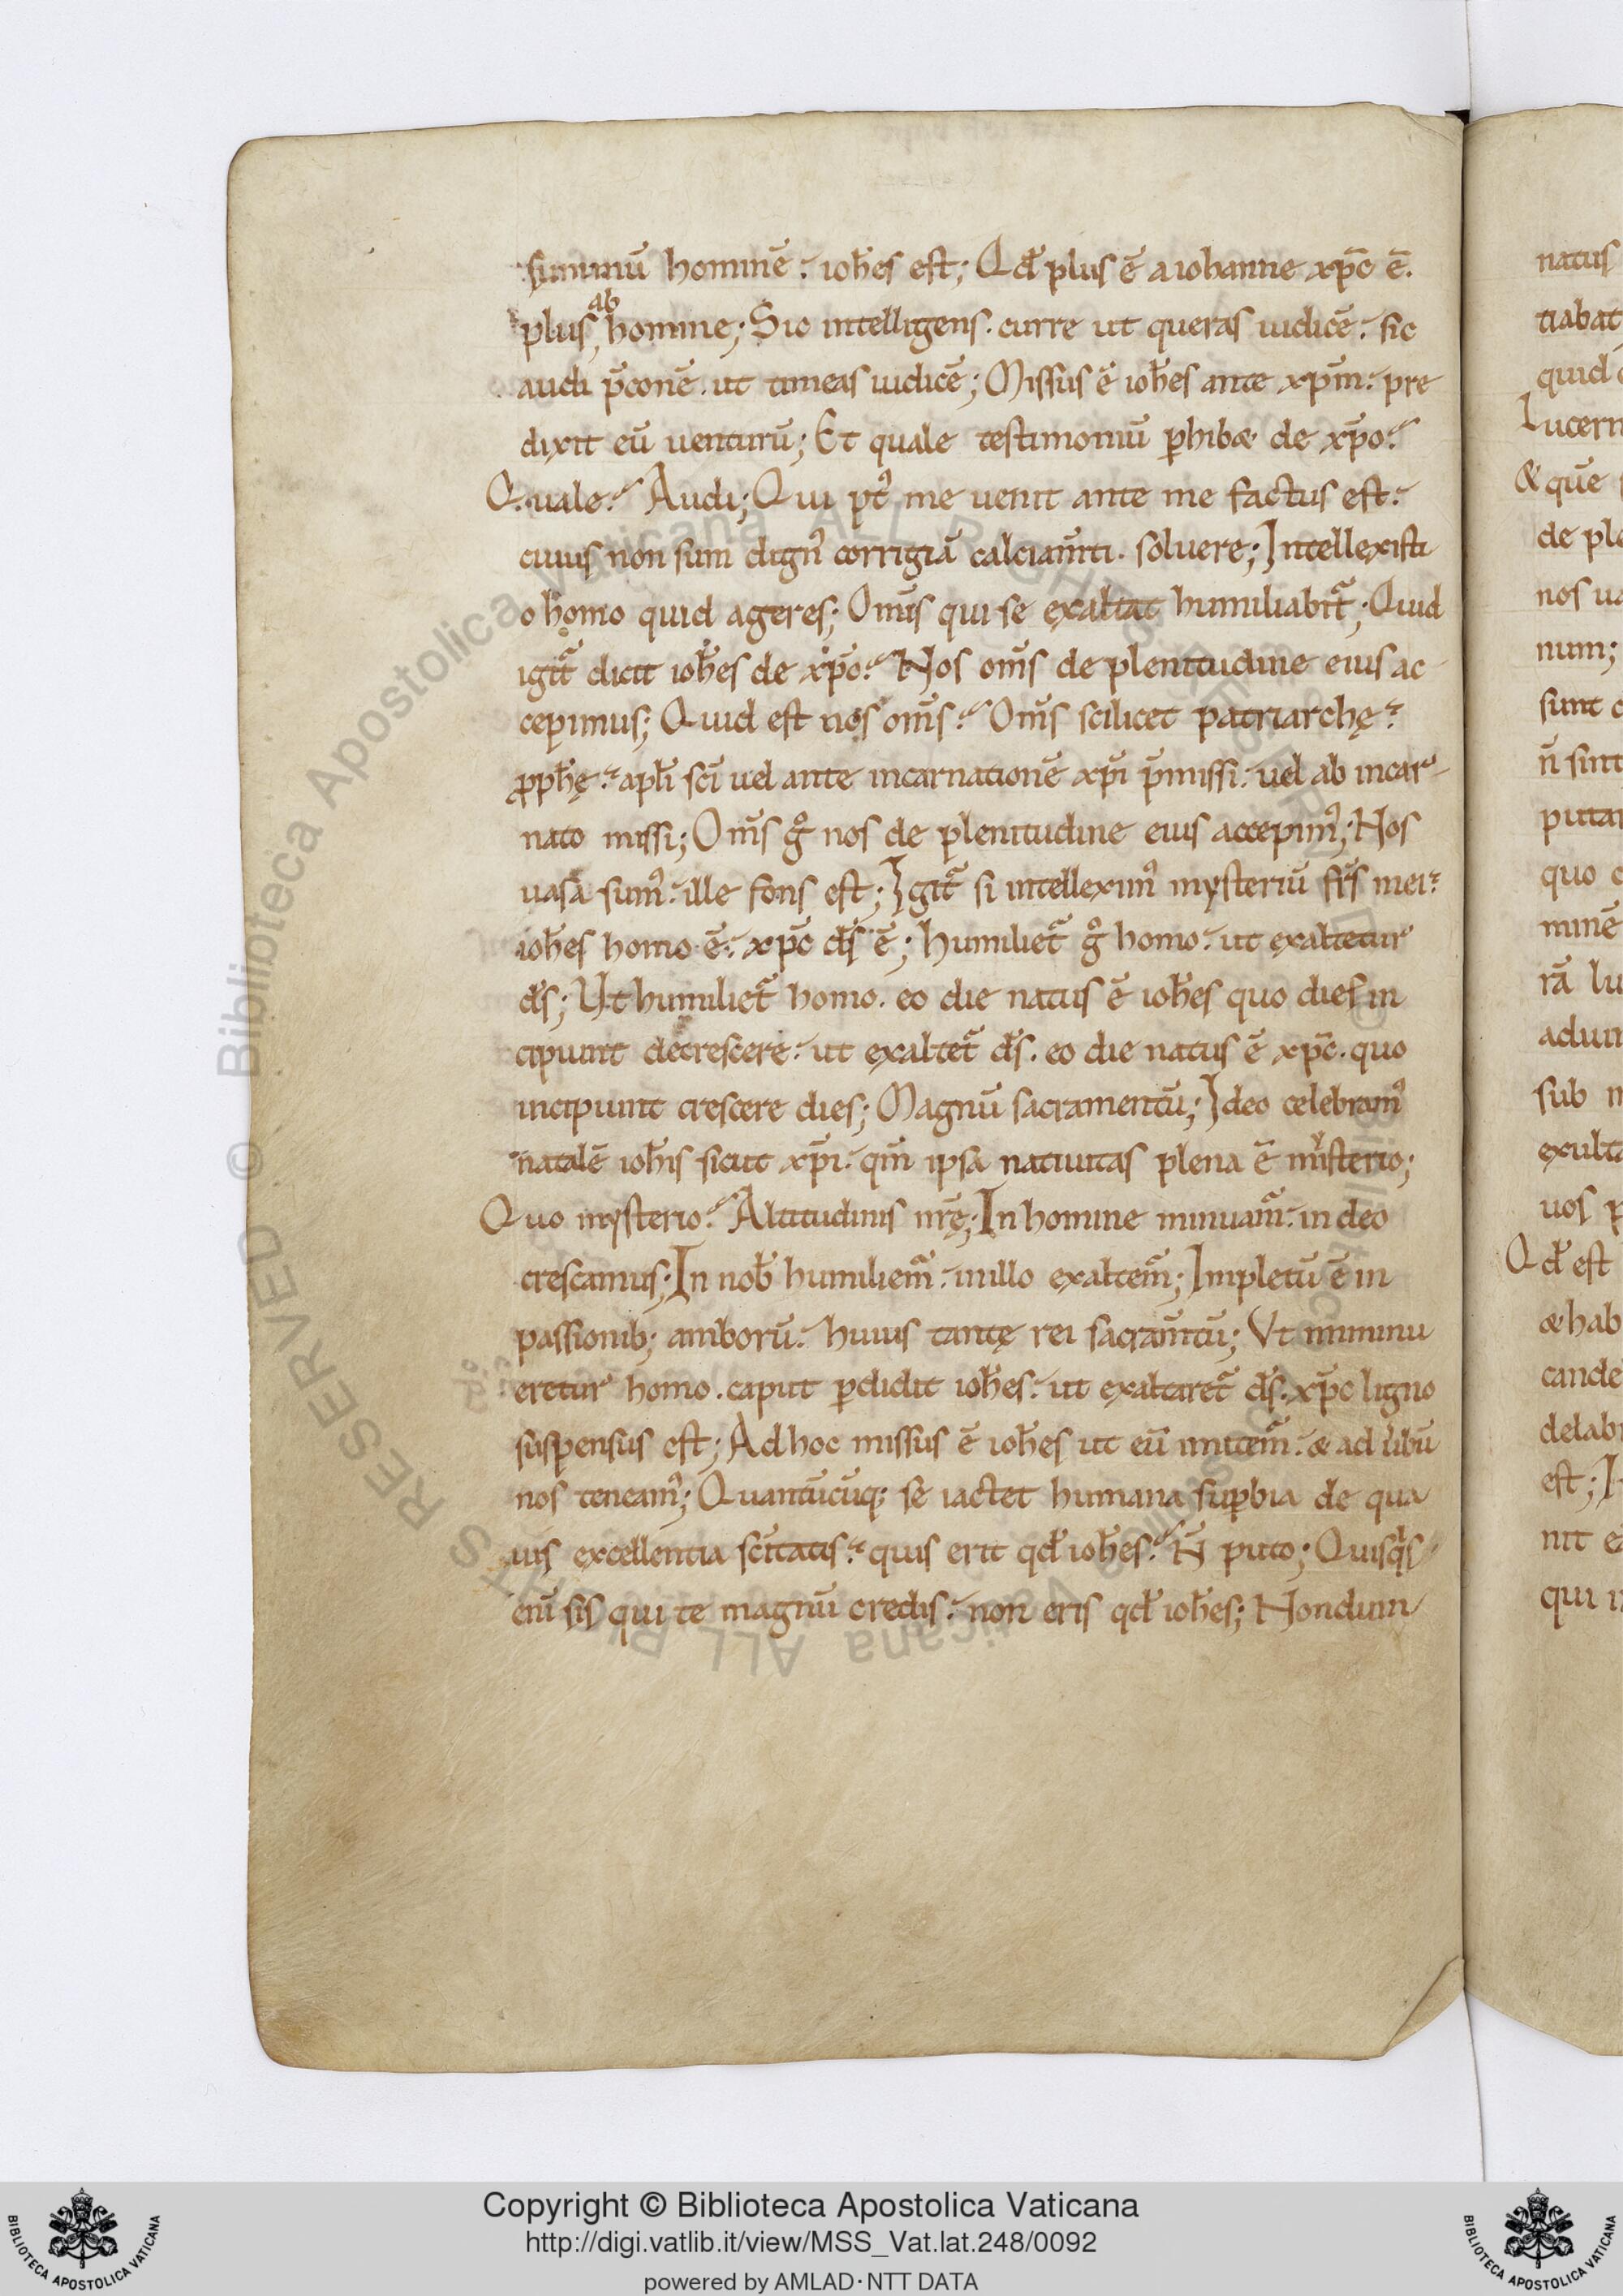 summū hominē. ioh̄es est; Qd̄ plus ē a iohanne xp̄c ē.
plus ab homine; Sic intelligens. curre ut queras iudicē. sic
audi p̄conē. ut timeas iudicē; Missus ē ioh̄es ante xp̄m. pre
dixit eū uenturū; Et quale testimoniū ꝑhib& de xp̄o?
Quale? Audi; Qui pꝰt me uenit ante me factus est.
cuius non sum dignꝰ corrigiā calciam̄ti. soluere; Intellexisti
o homo quid ageres; Om̄s qui se exaltat humiliabit᷑; Quid
igit᷑ dicit ioh̄es de xp̄o? Nos om̄s de plenitudine eius ac
cepimus; Quid est nos om̄s? Om̄s scilicet patriarchę.
ꝓph̄ę. apl̄i sc̄i uel ante incarnationē xp̄i p̄missi. uel ab incar
nato missi; Om̄s gͦ nos de plenitudine eius accepimꝰ; Nos
uasa sumꝰ. ille fons est; Igit᷑ si intelleximꝰ mysteriū fr̄s mei.
ioh̄es homo ē. xp̄c d̄s ē; humiliet᷑ gͦ homo. ut exaltetur
d̄s; Ut humiliet᷑ homo. eo die natus ē ioh̄es quo dies in
cipiunt decrescere. ut exaltet᷑ d̄s. eo die natus ē xp̄c. quo
incipiunt crescere dies; Magnū sacramentū; Ideo celebramꝰ
natalē ioh̄is sicut xp̄i. qm̄ ipsa natiuitas plena ē misterio;
Quo mysterio? Altitudinis nr̄ę; In homine minuam᷑. in deo
crescamus; In nob̄ humiliem᷑. in illo exaltem᷑; Impletū ē in
passionib; amborū. huius tantę rei sacram̄tū; Vt mminu
eretur homo. caput ꝑdidit ioh̄es. ut exaltaret᷑ d̄s. xp̄c ligno
suspensus est; Ad hoc missus ē ioh̄es ut eū imitem᷑. & ad u̍bū
nos teneamꝰ; Quantūcūq; se iactet humana suꝑbia de qua
uis excellentia sc̄itatis. quis erit qd̄ ioh̄es? N̄ puto; Quisqͥs
eni̅ sis qui te magnū credis. non eris qd̄ ioh̄es; Nondum
natus
tiabat
quid
Lucern
& que
de ple
nos ua
num;
sunt
n̄ sint
putar
quo
minē
rā lu
adun
sub
exulta
uos
Qd̄ est
& hab
cande
delabi
est;
nit
qui
© Biblioteca Apostolica Vaticana ALL RIGHTS RESERVED
Copyright © Biblioteca Apostolica Vaticana
http://digi.vatlib.it/view/MSS_Vat.lat.248/0092
powered by AMLAD·NTT DATA
BIBLIOTECA APOSTOLICA VATICANA
BIBLIOTECA APOSTOLICA VATICANA